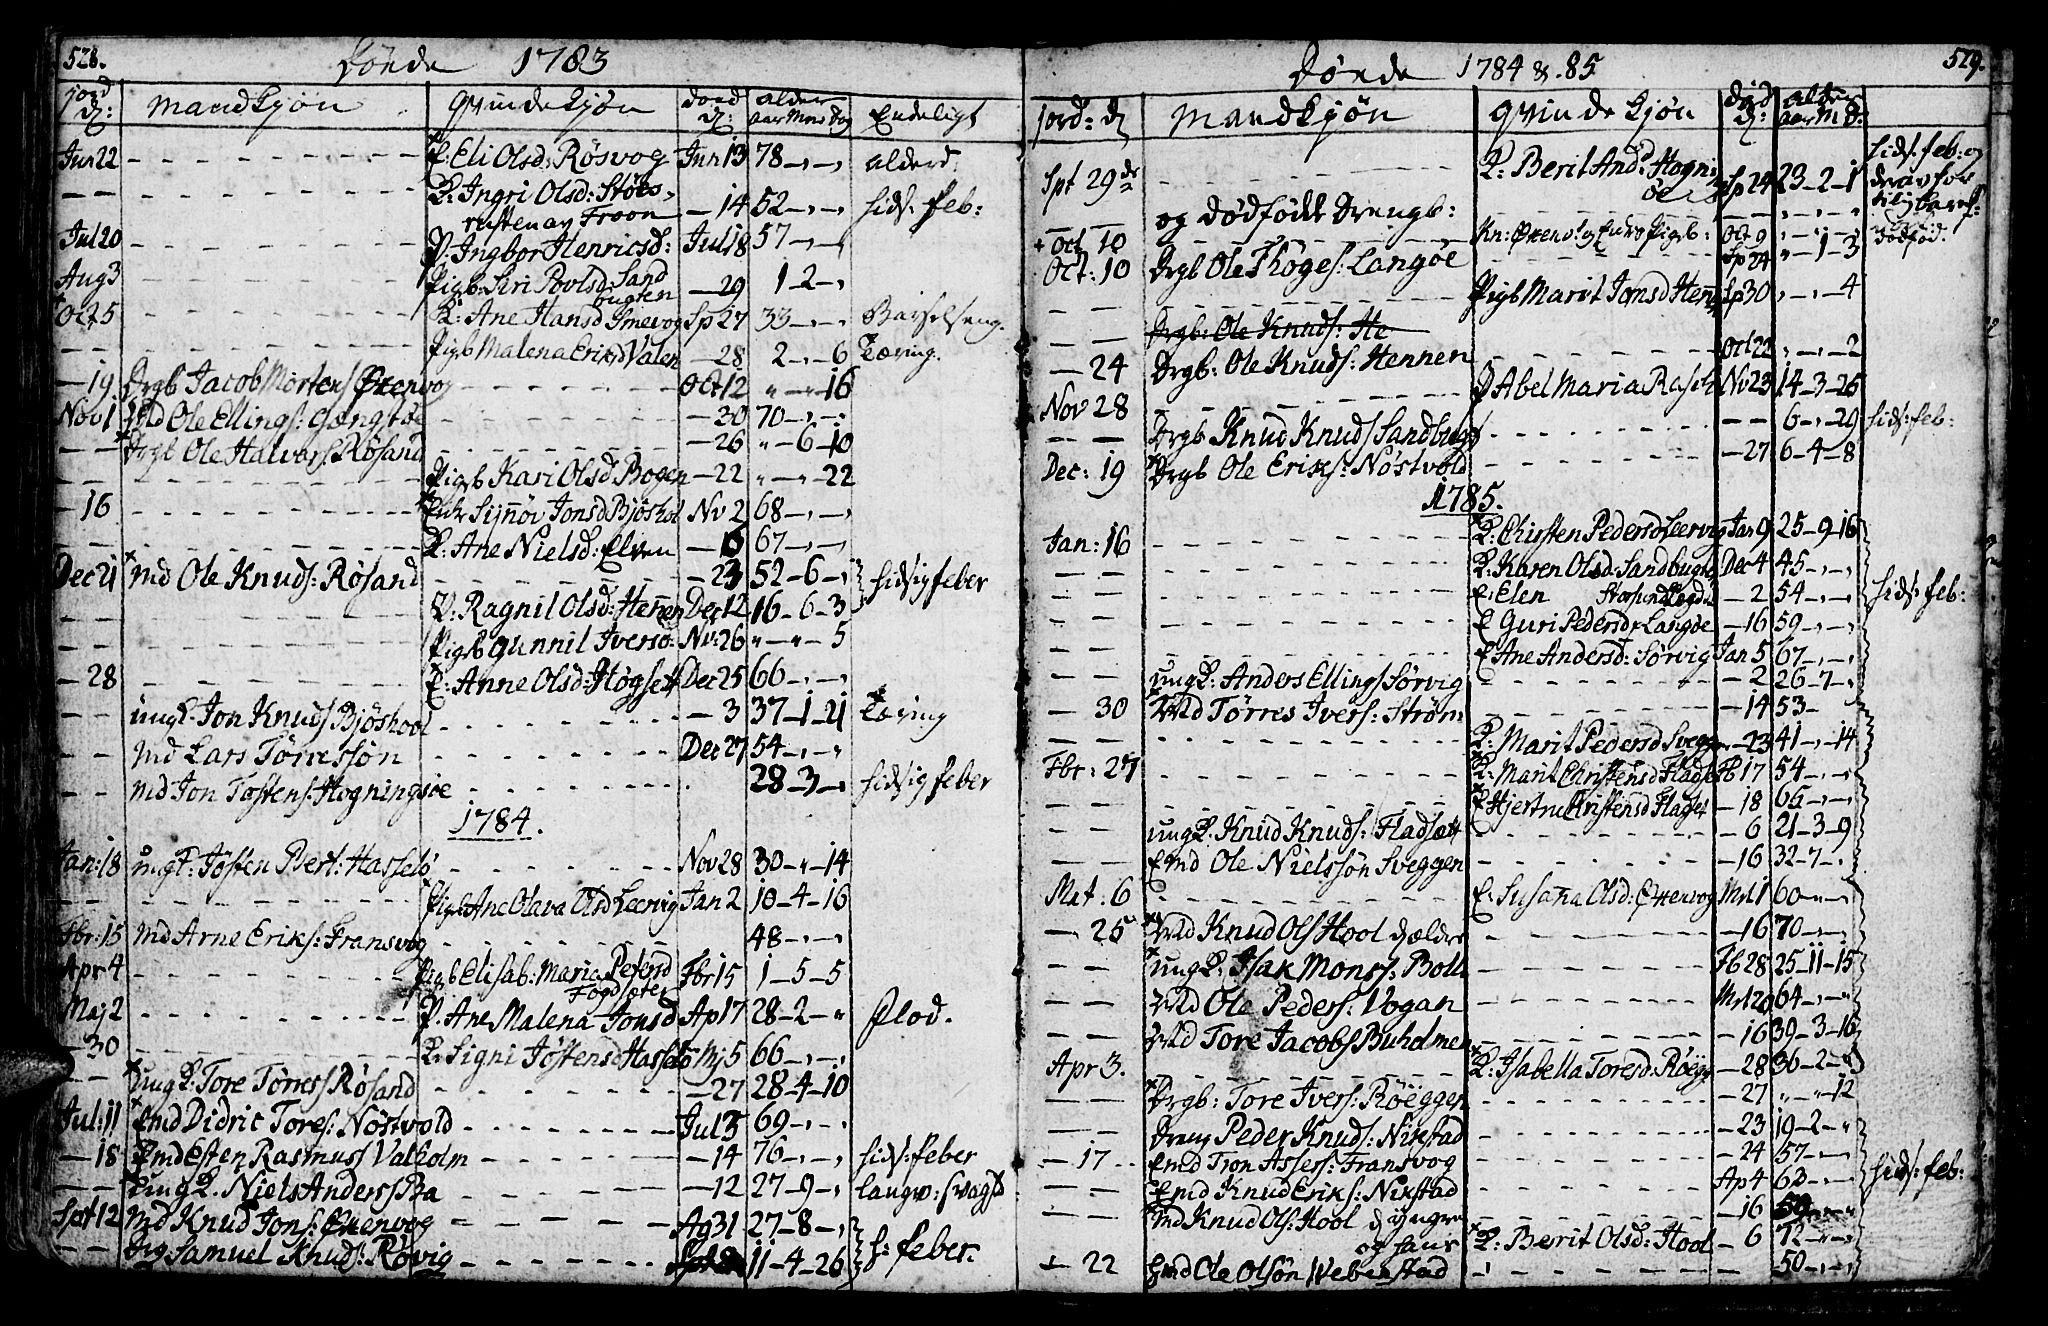 528.
Dönde 1783
jord d: Mandkjön qvindekjön död d: alder aar Mon dag Endeligt
Jun 22 E: Eli Olsd: Røsvog Jun 13 78 -,-, alderd
K: Ingri Olsd: Støls- - 14 52 -,-, hids: feb:
Jul 20 P: Ingbor Henricsd: Jul 18 57 -,-,
Aug 3 Pigb: Siri Povlsd: Sand
bugten - 29 1-2-,
Oct 5 K: Ane Hansd Smevog Sp 27 33 -,-, Barselseng.
- - Pigb Malena Ericsd Valen - 28 2-,-6 Tæring.
- 19 Drgb Jacob Mortens Ørenvog Oct 12 "-"-16
Nov 1 Md Ole Ellings: Gangstøe - 30 70 -,-,
- - Drgb Ole Halvars: Røsand - 26 "-6-10
- - Pigb Kari Olsd Bogen - 22 "-"-22
- 16 Enk Signøv Jonsd Bjøshol Nv 2 68 -,-,
- - K: Ane Nielsd: Elven - 16 67 -,-,
Dec 21 Md Ole Knuds: Røsand - 23 52-6-, hidsig feber
- - P: Ragnil Olsd: Hennen Dec 12 16-6-3
- - Pigb Gunnil Iversd: Nv: 26 "-"-5
- 28 E: Anne Olsd: Høgset Dec 25 66 -,-,
- - ungk. Jon Knuds Bjøshool - 3 37-1-21 Tæring
- - Md Lars Tørressøn Dec 27 54 -,-"
- - Md Jon Tostens: Hogningsøe 28-3-, hidsig feber
1784.
Jan: 18 ungk: Jøsten Bert: Hasselø Nov 28 30-"-14
- - Pigb Ane Olava Olsd Leervig Jan 2 10-4-16
Fbr: 15 Md Arne Eriks: Fransvog 48 -,-,
Apr 4 Pigb Elisab: Maria Petersd
Fogdsæter Fbr 15 1-5-5
Maj 2 P: Ane Malena Jonsd Ap 17 28-2-" Flod.
- 30 K: Signi Jøstensd Hasselø Mj 5 66 -,-,
- - ungk: Tore Tørres Røsand - 27 28-4-10
Jul: 11 Emd Didric Tores: Nøstvold Jul 3 69 -,-,
- 18 Emd Esten Rasmuss Valholm - 14 76 -,-, hids: feber
- - ungk. Niels Anders Ba - 12 27-9-, langv: svagh
Spt 12 Md Knud Jons: Ørenvog Ag 31 27-8-,
- - Drg Samuel Knuds: Røvig 11-4-26 h: feber.
529.
Dönde 1784 & 85
jord: d Mandkjön qvindekjön död d: alder aar M d:
Spt 29de K: Berit Andsd Hognings
øe Sp 24 23-2-1 hids: feb: og
og dødfødt Drengb:
+ Oct 10 Oct 9 dødfød.
Oct: 10 Drgb Ole Thoges: Langøe Sp 24 "-1-3
- - Pigb Marit Jonsd Henn Sp 30 ,-,-4
- - Drgb: Ole Knuds: He
- 24 Drgb: Ole Knuds: Hennen Oct 22 ,-,-2
Nov 28 P Abel Maria Rasch Nv 23 14-3-25
- - Drgb Knud Knuds Sandbugt - - 6-,-29 hids: feb:
Dec: 19 Drgb Ole Eriks: Nøstvold - 27 6-4-8
1785.
Jan: 16 K: Chirsten Pedersd Leervig Jan 9 25-9-16
- - K: Karen Olsd: Sandbugt Dec 4 45 -,-,
- - E: Elen - 2 54 -,-, hids: feb:
- - E Guri Pedersdr Langøe - 16 59 -,-,
- - E Ane Andersd: Sørvig Jan 5 67 -,-,
- - ungk: Anders Ellings Sørvig - 2 26-7-,
- 30 Md Tørres Ivers: Strøm - 14 53 -
- - K: Marit Pedersd Sveggen - 23 41-,-14
Fbr: 27 K: Marit Christensd Fladset Fb 17 54 -,-,
- - E Hjertru Christensd Fladset - 18 65 -,-,
- - ungk. Knud Knuds: Fladsæt - 6 21-3-9
- - Emd Ole Nielssøn Sveggen - 16 32-7-,
Mrt. 6 E: Susana Olsd: Ørenvog Mrt 1 60 -,-,
- 25 Md Knud Ols Hool d. ældre - 16 70 -,-,
- - ungk. Isak Monss: Bolli Fb 28 25-11-15
- - Md Ole Peders: Vogan Mrt 20 64 -,-"
- - Md Tore Jacobs Buholmen - 16 39-3-16
Apr 3. K: Isabella Toresd: Røegg - 28 36-2-
- - Drgb: Tore Ivers: Røeggen - 27 "-"-12
- - Dreng Peder Knuds: Nikstad - 23 19-2-"
- 17 Emd Tron Assers: Fransvog - 24 57 -,-
- - Emd Knud Eriks: Nikstad Ap 4 63 -,-, hids: feb:
- - Md Knud Ols: Hool d yngre - 16 50
og hans K: Berit Olsd: Hool - 6 72 -"-
+ - 22 Emd Ole Olsøn Weberstad - 50 -,-,